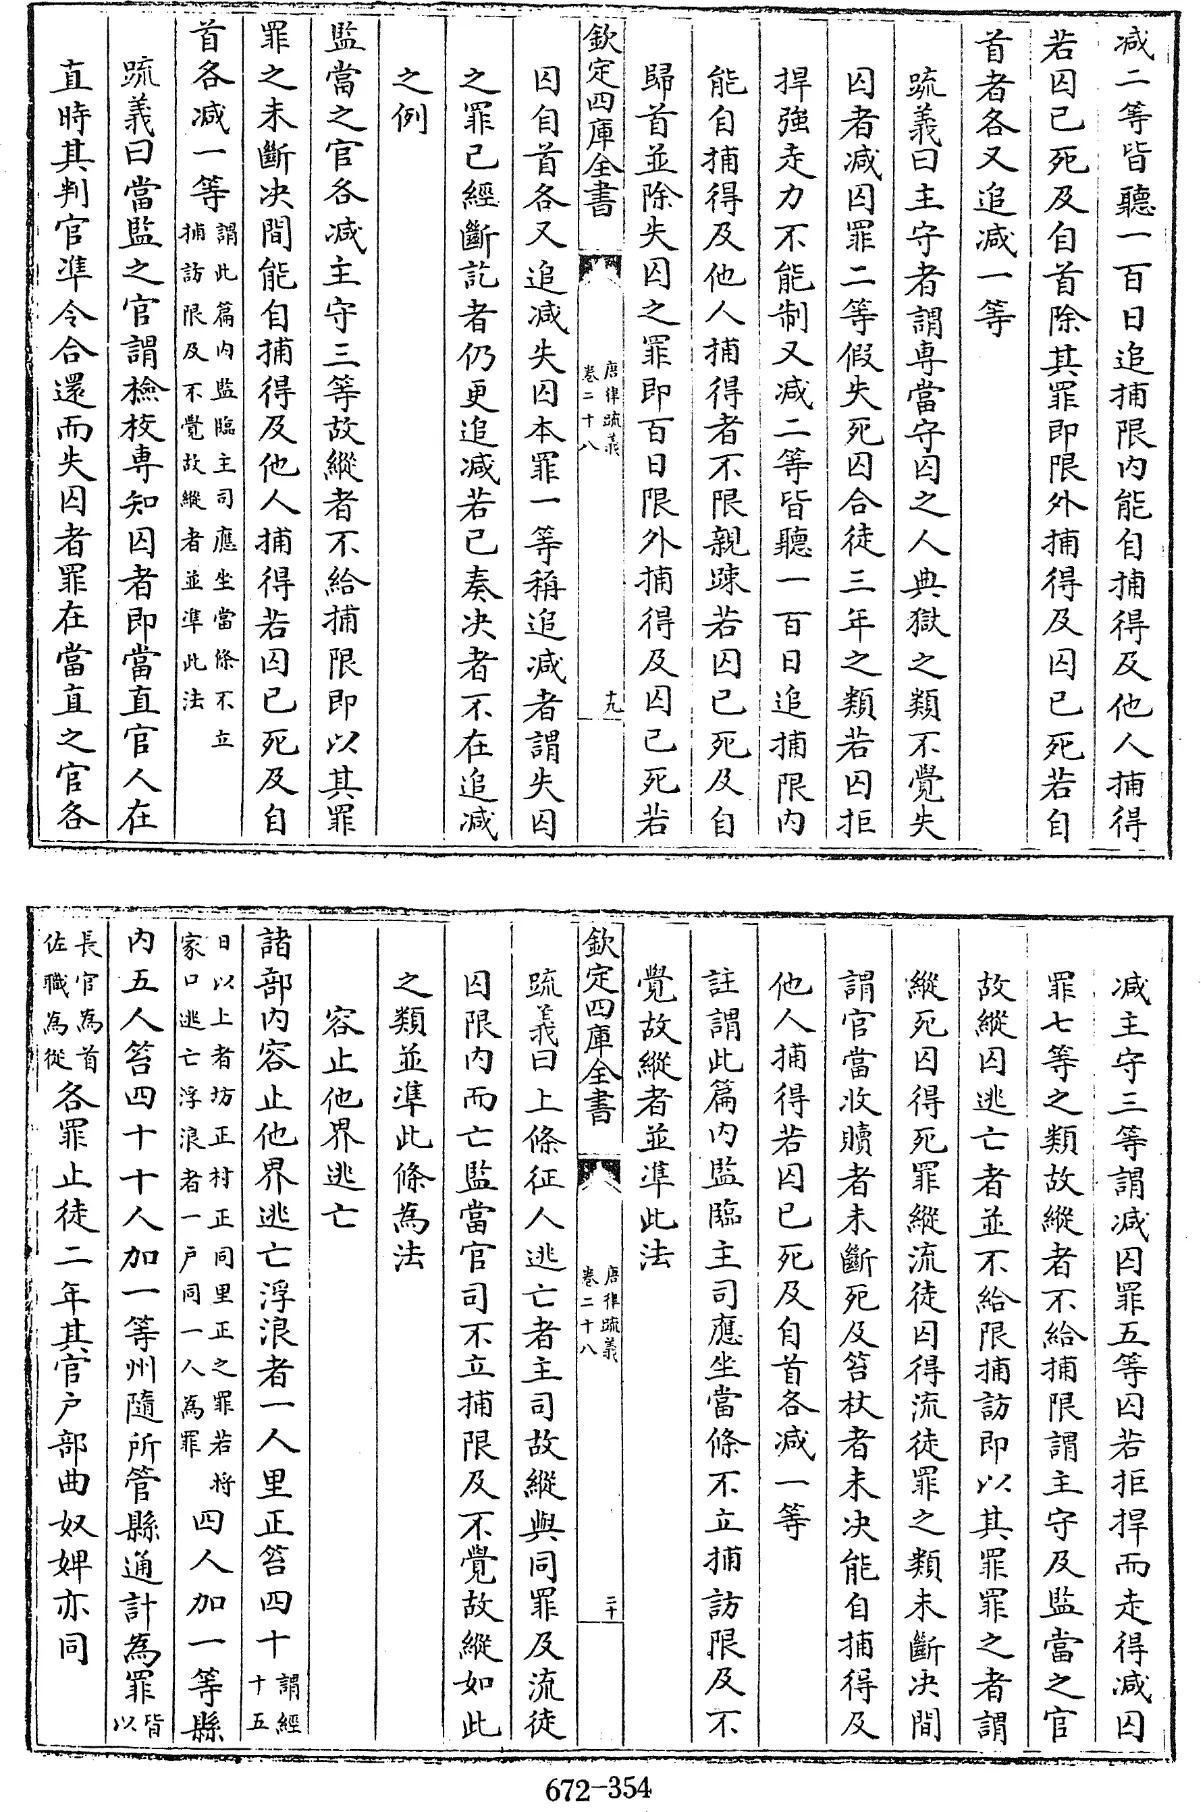 减二等皆聽一百日追捕限内能自捕得及他人捕得
若囚已死及自首除其罪即限外捕得及囚已死若自
首者各又追减一等
疏義曰主守者謂専當守囚之人典獄之類不覺失
囚者减囚罪二等假失死囚合徒三年之類若囚拒
捍強走力不能制又减二等皆聽一百日追捕限内
能自捕得及他人捕得者不限親疎若囚已死及自
歸首並除失囚之罪即百日限外捕得及囚已死若
欽定四庫全書
唐律疏義
卷二十八
十九
囚自首各又追减失囚本罪一等稱追减者謂失囚
之罪已經斷訖者仍更追减若已奏决者不在追减
之例
監當之官各减主守三等故縱者不給捕限即以其罪
罪之未斷决間能自捕得及他人捕得若囚已死及自
首各减一等謂此篇内監臨主司應坐當條不立捕訪限及不覺故縱者並準此法
疏義曰當監之官謂檢校専知囚者即當直官人在
直時其判官凖令合還而失囚者罪在當直之官各
减主守三等謂减囚罪五等囚若拒捍而走得减囚
罪七等之類故縱者不給捕限謂主守及監當之官
故縱囚逃亡者並不給限捕訪即以其罪罪之者謂
縱死囚得死罪縱流徒囚得流徒罪之類未斷决間
謂官當收贖者未斷死及笞杖者未决能自捕得及
他人捕得若囚已死及自首各减一等
註謂此篇内監臨主司應坐當條不立捕訪限及不
覺故縱者並準此法
欽定四庫全書
唐律疏義
卷二十八
二十
疏義曰上條征人逃亡者主司故縱與同罪及流徒
囚限内而亡監當官司不立捕限及不覺故縱如此
之類並準此條為法
容止他界逃亡
諸部内容止他界逃亡浮浪者一人里正笞四十謂經十五
日以上者坊正村正同里正之罪若將家口逃亡浮浪者一户同一人為罪四人加一等縣
内五人笞四十十人加一等州隨所管縣通計為罪皆以
長官為首佐職為從各罪止徒二年其官户部曲奴婢亦同
672-354